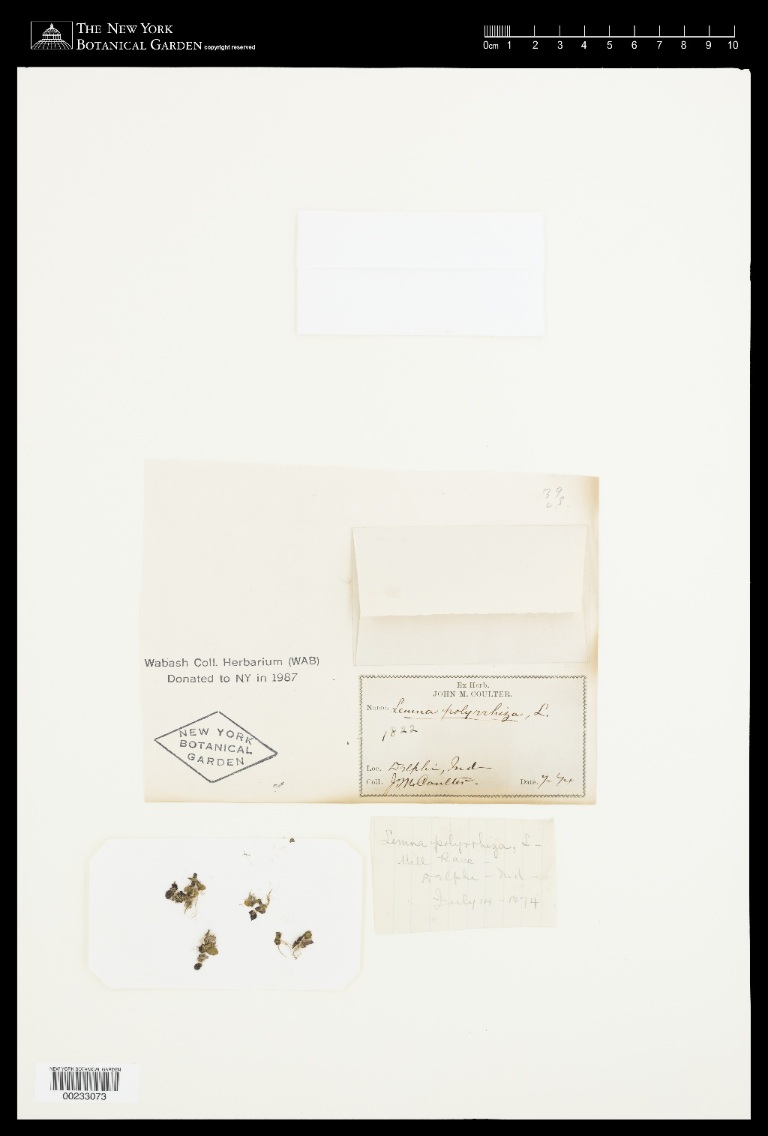 THE NEW YORK
BOTANICAL GARDEN copyright reserved
0cm 1 2 3 4 5 6 7 8 9 10
Wabash Coll. Herbarium (WAB)
Donated to NY in 1987
NEW YORK
BOTANICAL
GARDEN
Ex Herb.
JOHN M. COULTER.
Name. Lemna polyrrhiza, L.
1822
Loc. Delphi, Ind-
Coll. J.M. Coulter. Date. 7-
Lemna polyrrhiza, L-
Mill Race -
Delphi - Ind -
July 14 - 1874
NEW YORK BOTANICAL GARDEN
00233073